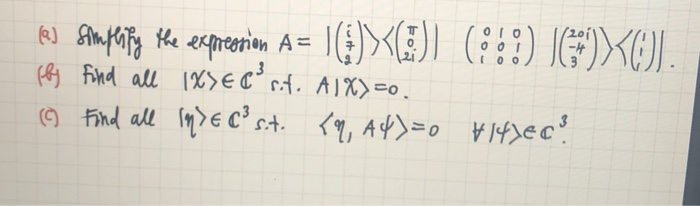 (a) Simplify the expression A = |(i 7 2)><(π 0 2i)| (0 1 0 0 0 1 1 0 0) |(20i -4 3)><(i 1 1)|.
(b) Find all |X> ∈ ℂ³ s.t. A|X> = 0.
(c) Find all |η> ∈ ℂ³ s.t. <η, Aψ> = 0 ∀ |ψ> ∈ ℂ³.